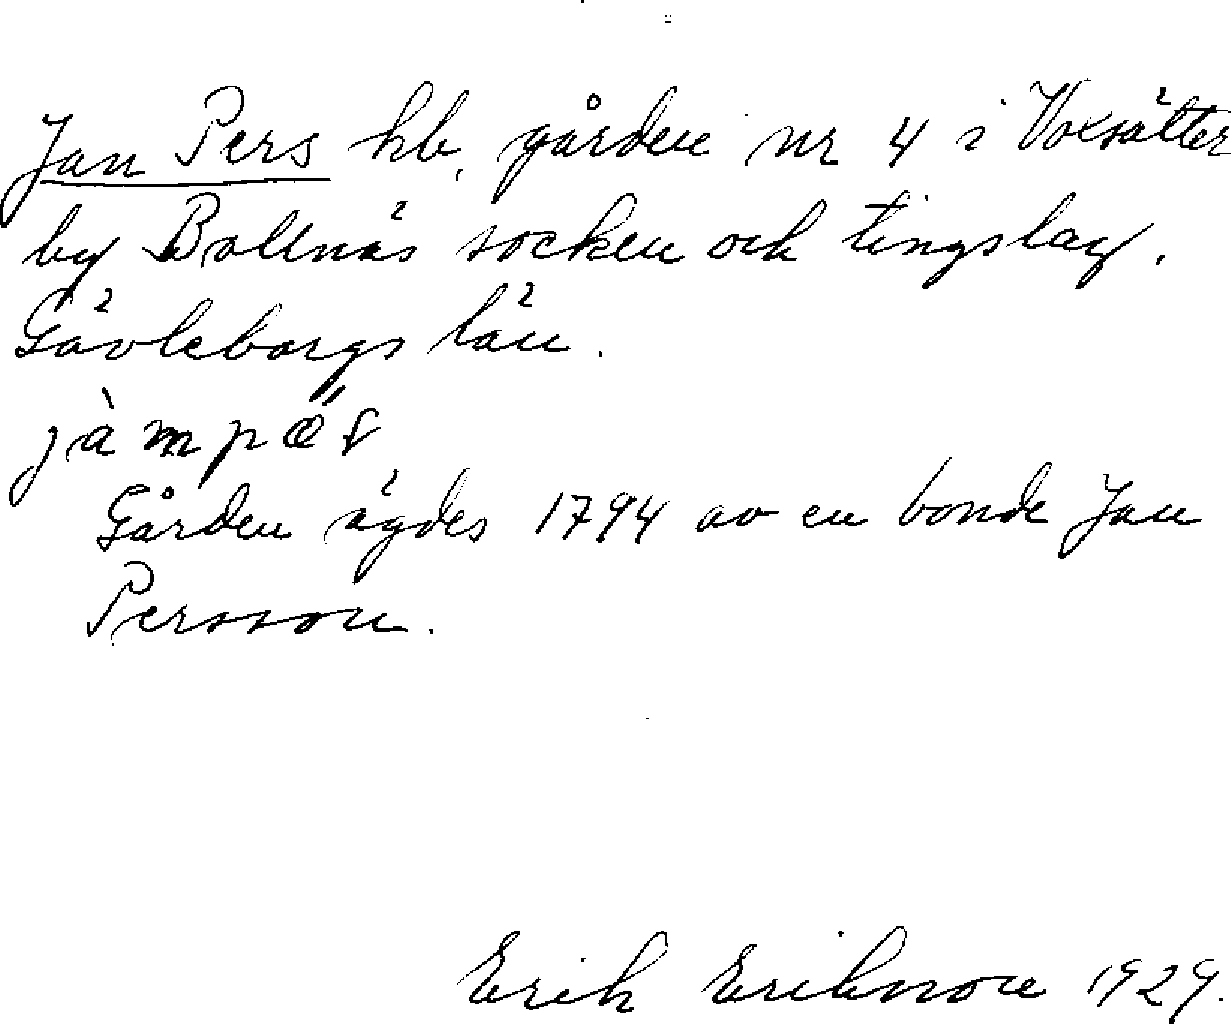 Jan Pers hb, gården nr 4 i Voxsätter
by Bollnäs socken och tingslag.
Gävleborgs län.
Gården ägdes 1794 av en bonde Jan
Persson.
Erik Eriksson 1929.